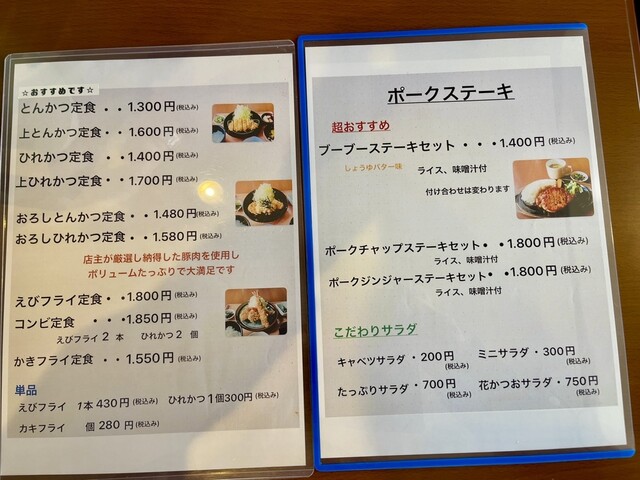 ☆おすすめです☆
とんかつ定食 ・・1.300円(税込み)
上とんかつ定食・・1.600円(税込み)
ひれかつ定食 ・・1.400円(税込み)
上ひれかつ定食・・1.700円(税込み)
おろしとんかつ定食・・1.480円(税込み)
おろしひれかつ定食・・1.580円(税込み)
店主が厳選し納得した豚肉を使用し
ボリュームたっぷりで大満足です
えびフライ定食・・1.800円(税込み)
コンビ定食 ・・・1.850円(税込み)
えびフライ2 本 ひれかつ2 個
かきフライ定食・・1.550円(税込み)
単品
えびフライ 1本430円(税込み) ひれかつ1個300円(税込み)
カキフライ 個 280 円(税込み)
ポークステーキ
超おすすめ
ブーブーステーキセット・・・1.400円(税込み)
しょうゆバター味 ライス、味噌汁付
付け合わせは変わります
ポークチャップステーキセット・・1.800円(税込み)
ライス、味噌汁付
ポークジンジャーステーキセット・・1.800円(税込み)
ライス、味噌汁付
こだわりサラダ
キャベツサラダ・200円(税込み) ミニサラダ・300円(税込み)
たっぷりサラダ・700円(税込み) 花かつおサラダ・750円(税込み)